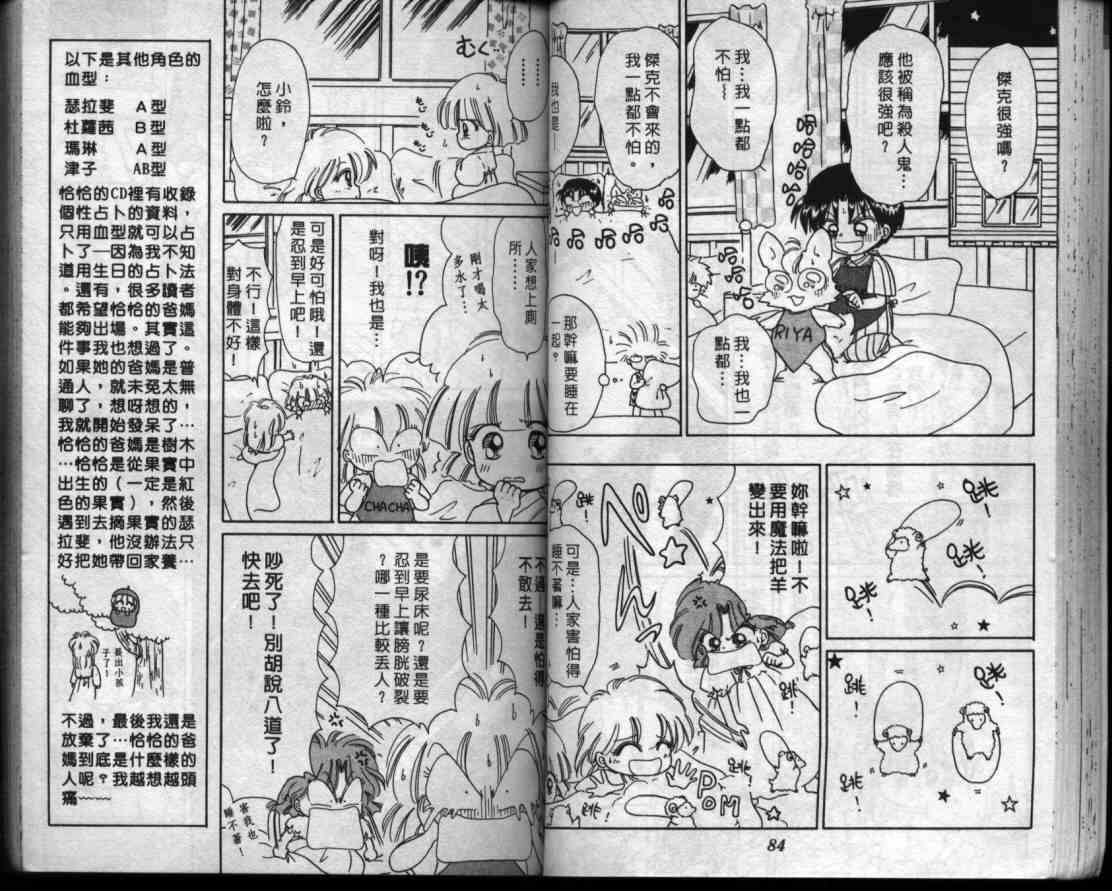 傑克很強嗎？
他被稱為殺人鬼…
應該很強吧？
我…我一點都
不怕～
RIYA
我…我也一
點都…
傑克不會來的，
我一點都不怕。
我也是
那幹嘛要睡在
一起。
跳
跳！
跳
跳！
跳！
跳
跳！
跳！
妳幹嘛啦！不
要用魔法把羊
變出來！
可是…人家害怕得
睡不著嘛…
跳！
跳！
POM
84
……
……
むく
小鈴，
怎麼啦？
人家想上廁
所……
剛才喝太
多水了…
咦!?
對呀！我也是…
CHACHA
可是好可怕哦！還
是忍到早上吧！
不行！這樣
對身體不好！
不過，還是怕得
不敢去！
是要尿床呢？還是要
忍到早上讓膀胱破裂
？哪一種比較丟人？
吵死了！別胡說八道了！
快去吧！
害我也
睡不著！
以下是其他角色的
血型：
瑟拉斐 A型
杜蘿茜 B型
瑪琳 A型
津子 AB型
恰恰的CD裡有收錄
個性占卜的資料，
只用血型就可以占
卜了－因為我不知
道用生日的占卜法
。還有，很多讀者
都希望恰恰的爸媽
能夠出場。其實這
件事我也想過了。
如果她的爸媽是普
通人，就未免太無
聊了，想呀想的，
我就開始發呆了…
恰恰的爸媽是樹木
…恰恰是從果實中
出生的（一定是紅
色的果實），然後
遇到去摘果實的瑟
拉斐，他沒辦法只
好把她帶回家養…
長出小孩
子了！
不過，最後我還是
放棄了…恰恰的爸
媽到底…是什麼樣的
人呢？我越想越頭
痛～～